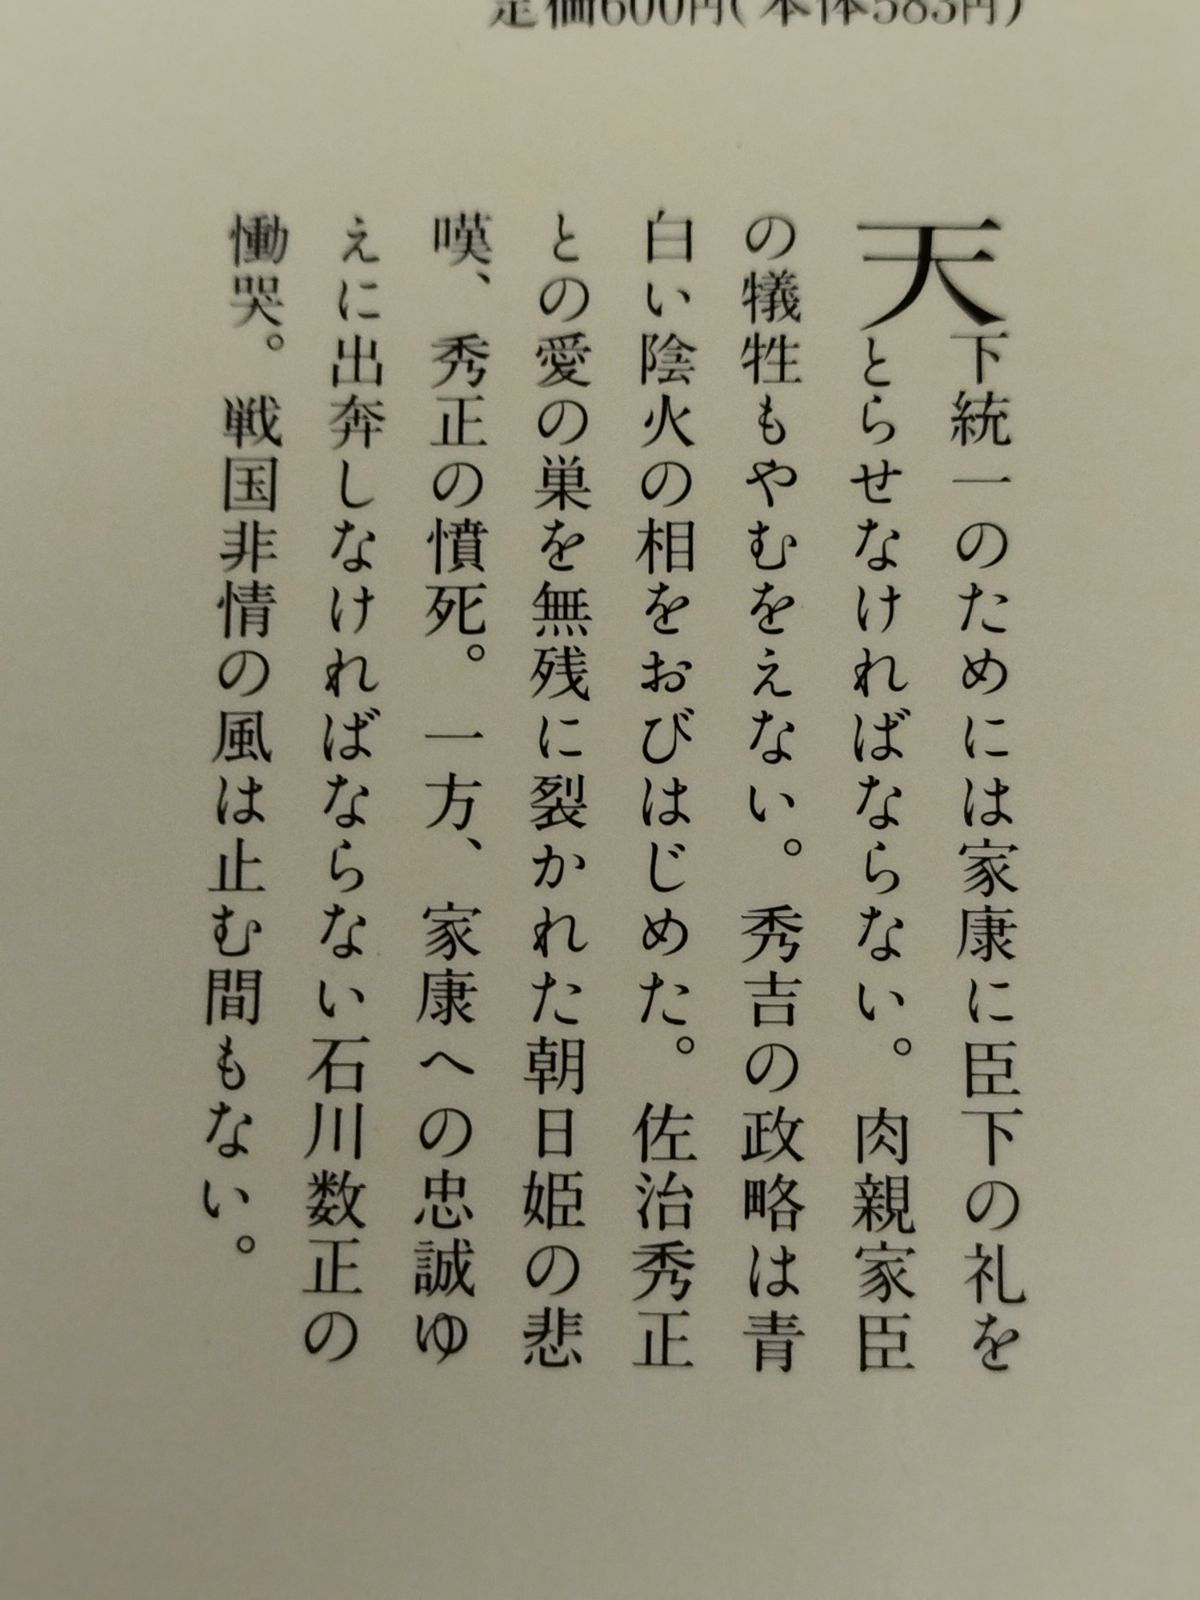 定価600円(本体583円)
天下統一のためには家康に臣下の礼を
とらせなければならない。肉親家臣
の犠牲もやむをえない。秀吉の政略は青
白い陰火の相をおびはじめた。佐治秀正
との愛の巣を無残に裂かれた朝日姫の悲
嘆、秀正の憤死。一方、家康への忠誠ゆ
えに出奔しなければならない石川数正の
慟哭。戦国非情の風は止む間もない。